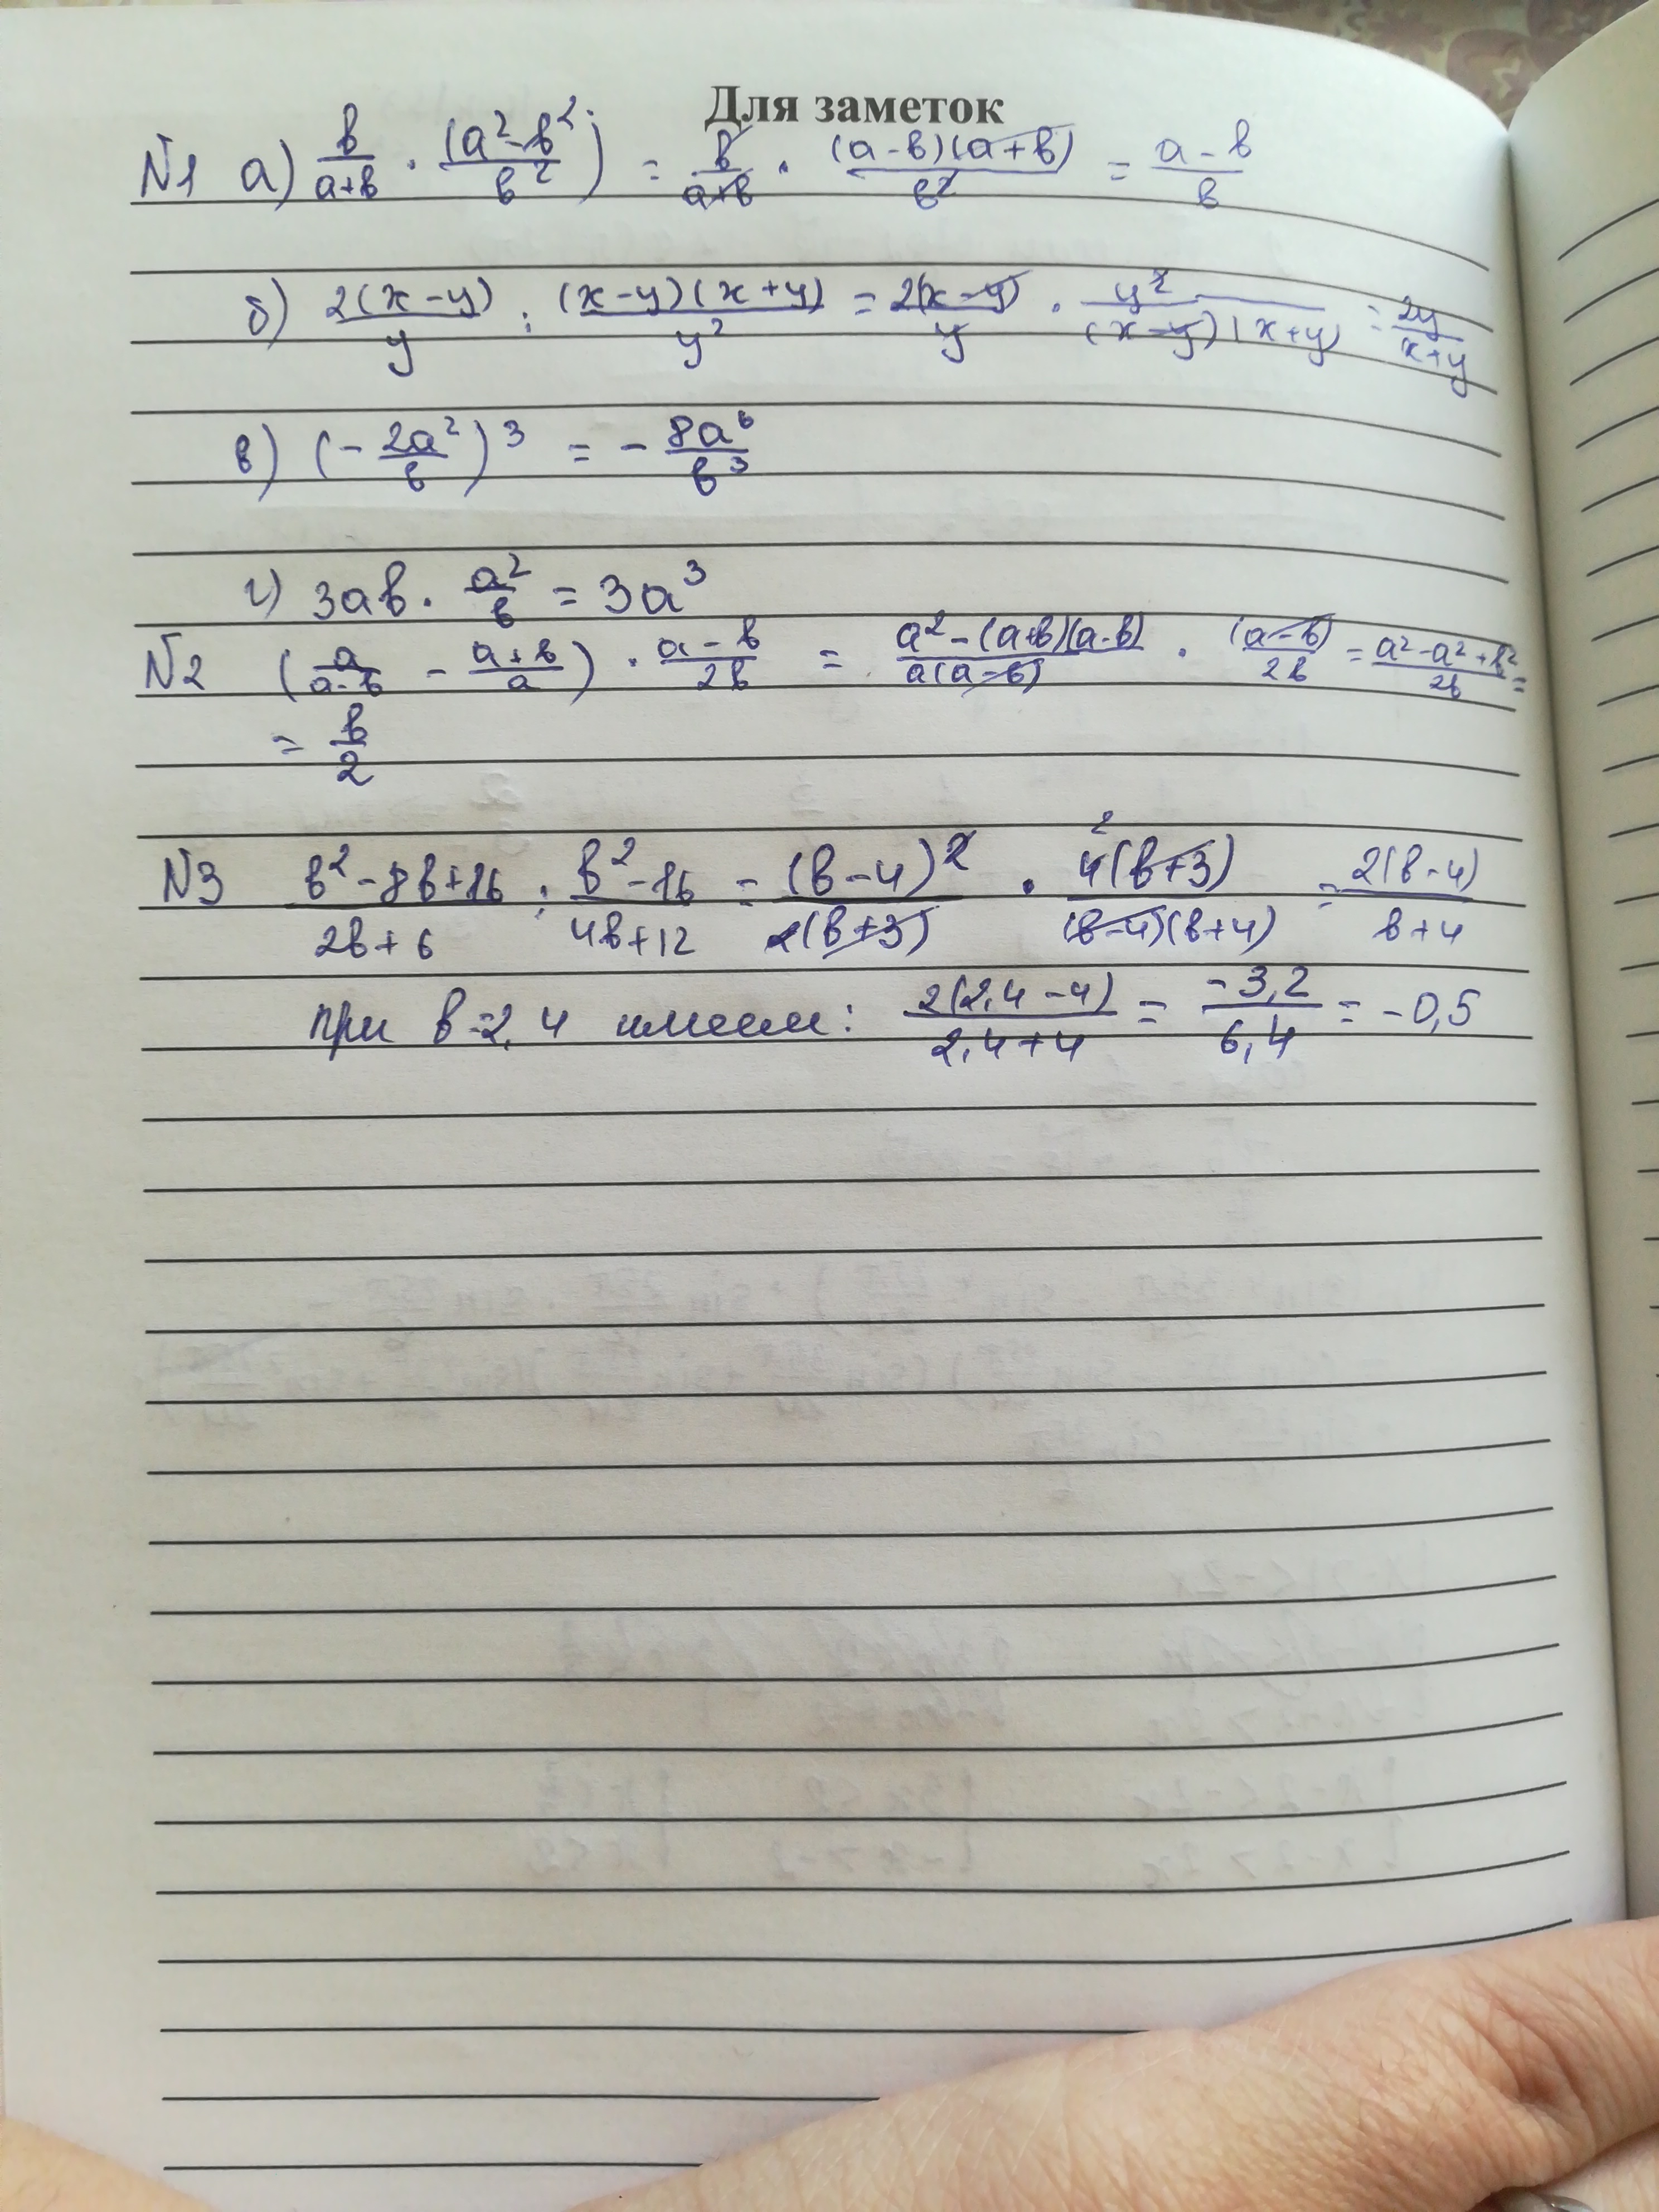 Для заметок
N1 a) b/(a+b) · (a² - b²)/b²) = b/(a+b) · (a-b)(a+b)/b² = (a-b)/b
б) 2(x-y)/y : (x-y)(x+y)/y² = 2(x-y)/y · y²/((x-y)(x+y)) = 2y/(x+y)
в) (-2a²/b)³ = -8a⁶/b³
г) 3ab · a²/b = 3a³
N2 (a/(a-b) - (a+b)/a) · (a-b)/2b = (a²-(a+b)(a-b))/(a(a-b)) · (a-b)/2b = (a²-a²+b²)/2b =
= b/2
N3 (b²-8b+16)/(2b+6) : (b²-16)/(4b+12) = (b-4)²/(2(b+3)) · ²4(b+3)/((b-4)(b+4)) = 2(b-4)/(b+4)
при b=2,4 имеем: 2(2,4-4)/(2,4+4) = -3,2/6,4 = -0,5